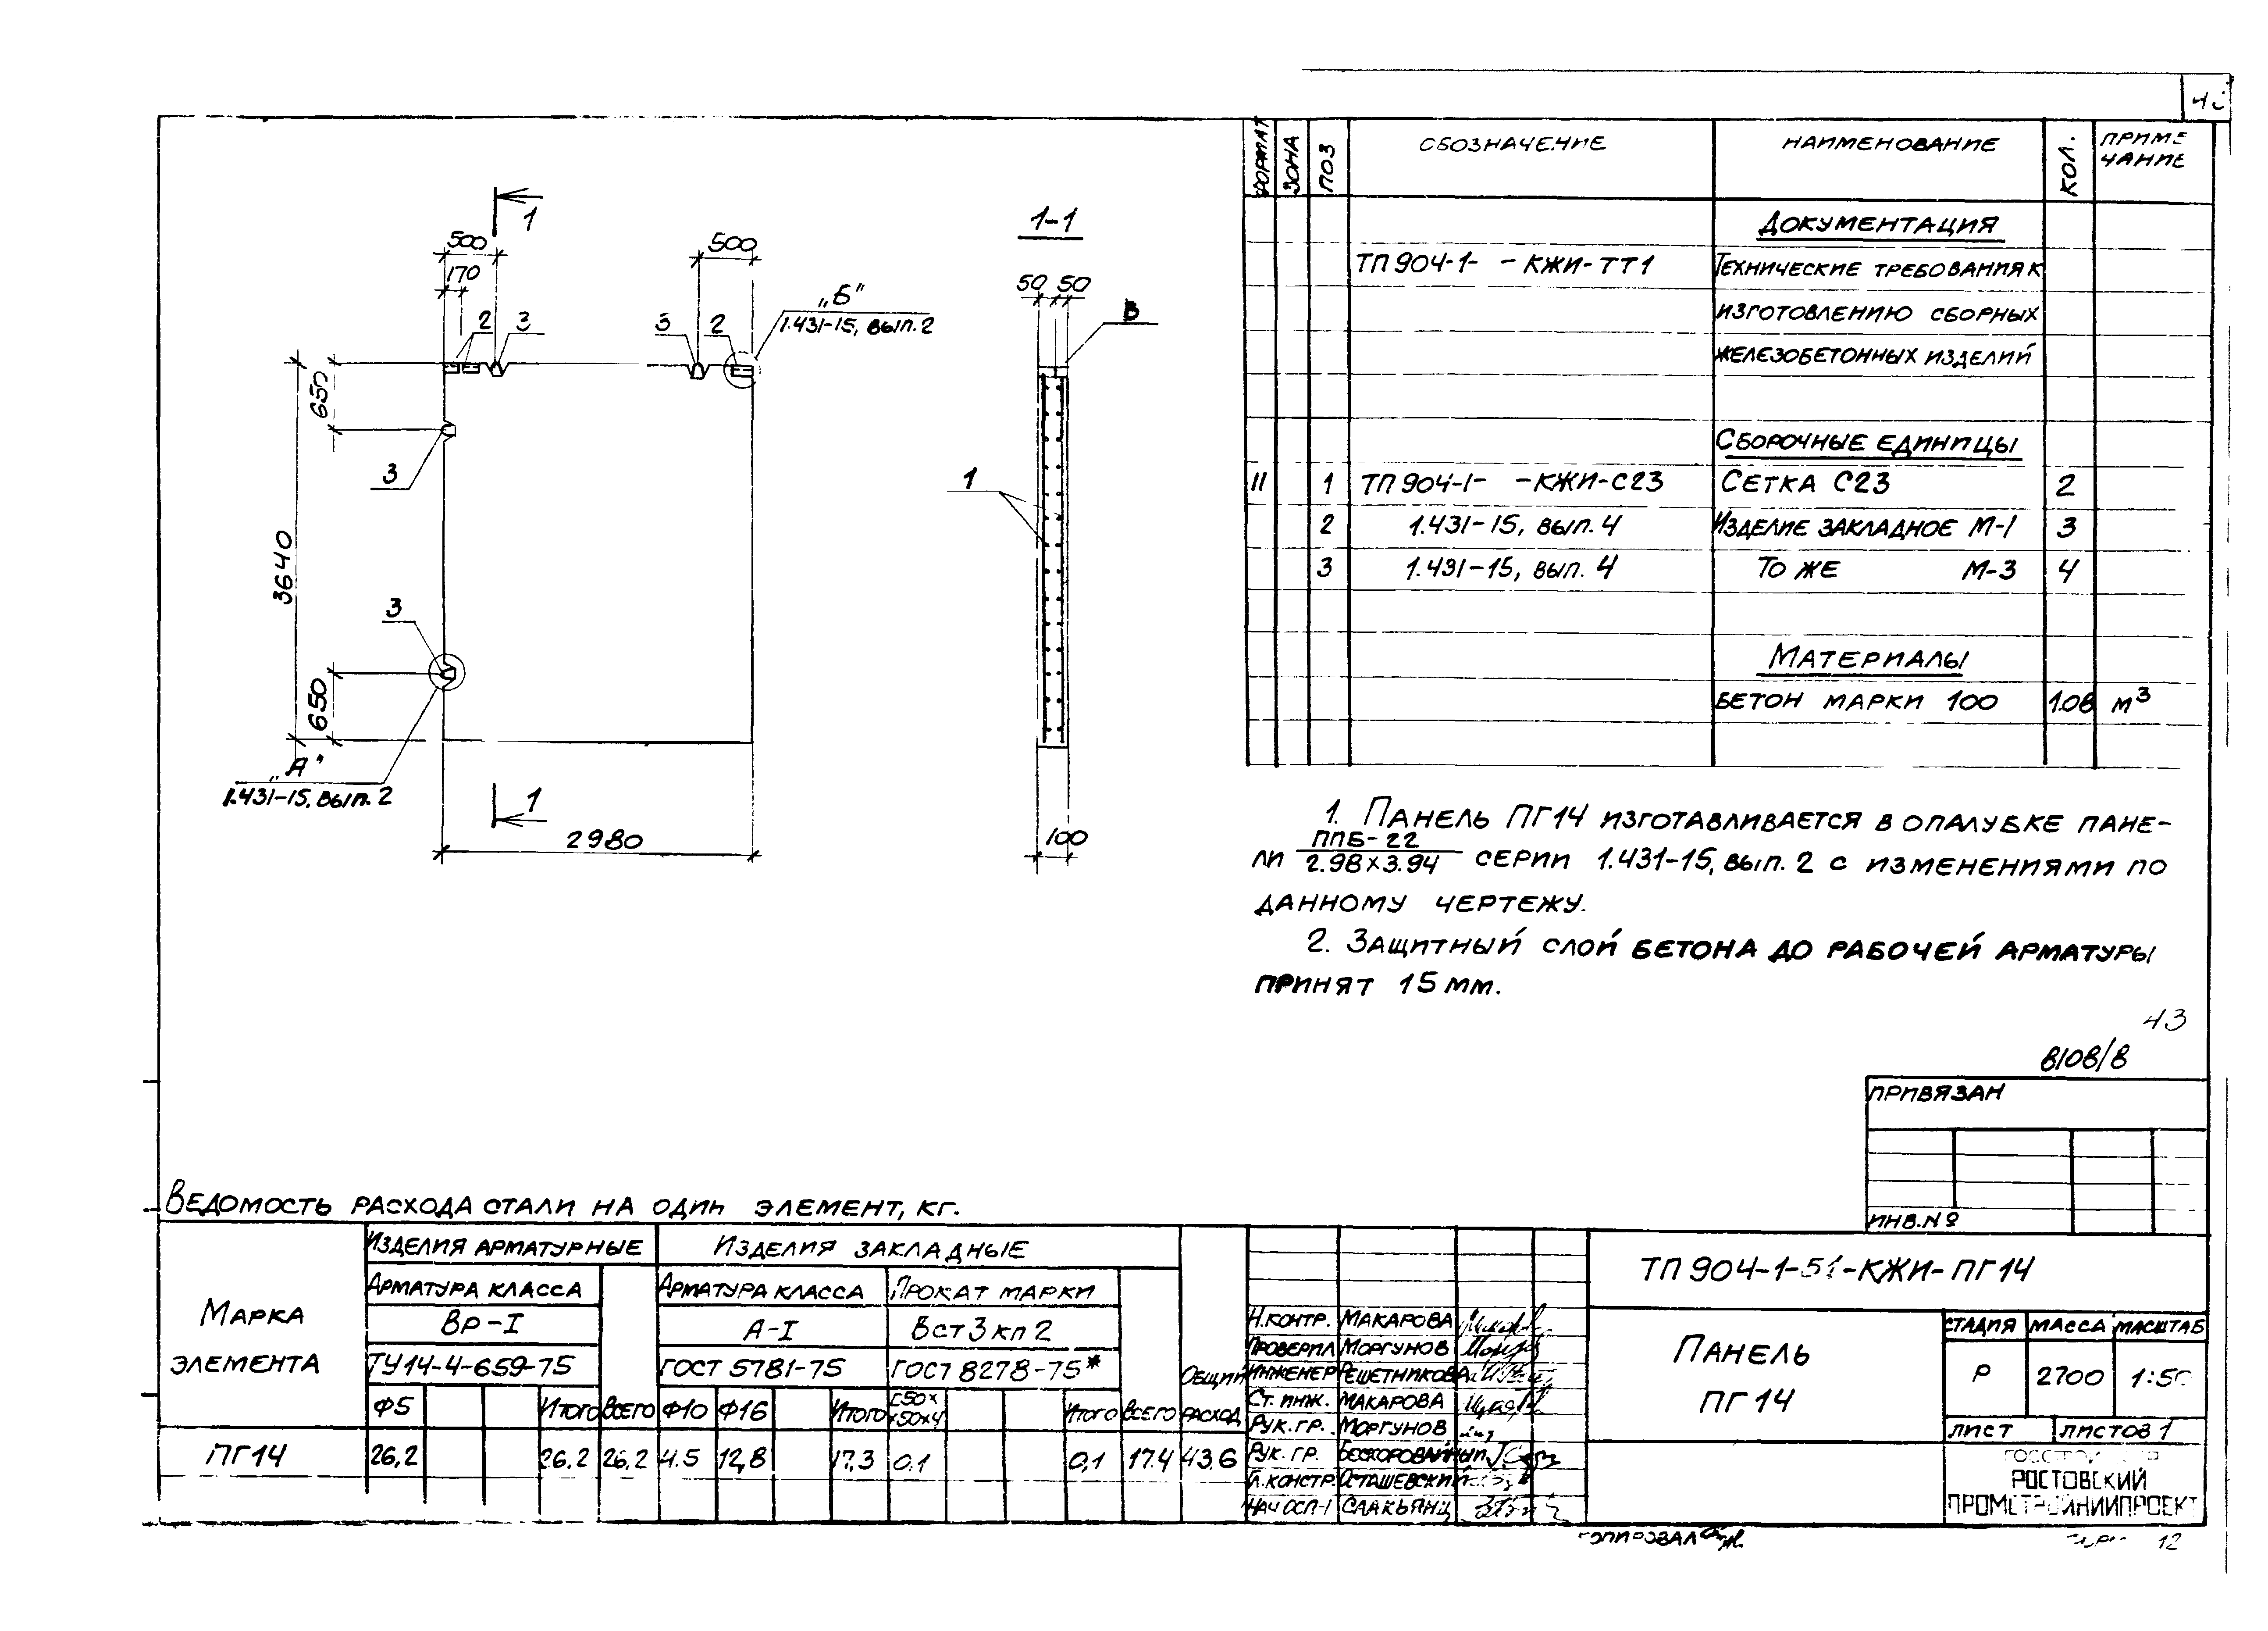 1
500
170
500
„Б"
1.431-15, вып. 2
2
3
3
2
650
3
3640
3
650
„А"
1.431-15, вып. 2
1
2980
1-1
50
50
В
1
100
ФОРМАТ
ЗОНА
ПОЗ
ОБОЗНАЧЕНИЕ
НАИМЕНОВАНИЕ
КОЛ.
ПРИМЕ
ЧАНИЕ
ДОКУМЕНТАЦИЯ
ТП 904-1- -КЖИ-ТТ1 ТЕХНИЧЕСКИЕ ТРЕБОВАНИЯ К
ИЗГОТОВЛЕНИЮ СБОРНЫХ
ЖЕЛЕЗОБЕТОННЫХ ИЗДЕЛИЙ
СБОРОЧНЫЕ ЕДИНИЦЫ
11 1 ТП 904-1- -КЖИ-С23 СЕТКА С23 2
2 1.431-15, вып. 4 ИЗДЕЛИЕ ЗАКЛАДНОЕ М-1 3
3 1.431-15, вып. 4 ТО ЖЕ М-3 4
МАТЕРИАЛЫ
БЕТОН МАРКИ 100 1.08 м³
1. ПАНЕЛЬ ПГ14 ИЗГОТАВЛИВАЕТСЯ В ОПАЛУБКЕ ПАНЕ-
ЛИ ППБ-22 / 2.98×3.94 СЕРИИ 1.431-15, вып. 2 С ИЗМЕНЕНИЯМИ ПО
ДАННОМУ ЧЕРТЕЖУ.
2. ЗАЩИТНЫЙ СЛОЙ БЕТОНА ДО РАБОЧЕЙ АРМАТУРЫ
ПРИНЯТ 15 ММ.
43
8108/8
ПРИВЯЗАН
ИНВ.№
ВЕДОМОСТЬ РАСХОДА СТАЛИ НА ОДИН ЭЛЕМЕНТ, КГ.
МАРКА
ЭЛЕМЕНТА
ИЗДЕЛИЯ АРМАТУРНЫЕ
ИЗДЕЛИЯ ЗАКЛАДНЫЕ
АРМАТУРА КЛАССА
АРМАТУРА КЛАССА
ПРОКАТ МАРКИ
ВР-I
А-I
ВСТ3КП2
ТУ14-4-659-75
ГОСТ 5781-75
ГОСТ 8278-75*
Ф5
ИТОГО
ВСЕГО
Ф10
Ф16
ИТОГО
[50×
×50×4
ИТОГО
ВСЕГО
ОБЩИЙ
РАСХОД
ПГ14 26,2 26.2 26,2 4.5 12,8 17.3 0,1 0,1 17.4 43.6
Н.КОНТР. МАКАРОВА
ПРОВЕРИЛ МОРГУНОВ
ИНЖЕНЕР РЕШЕТНИКОВА
СТ. ИНЖ. МАКАРОВА
РУК. ГР. МОРГУНОВ
РУК. ГР.
ГЛ.КОНСТР. ОСТАШЕВСКИЙ
НАЧ ОСП-1 СААКЬЯНЦ
ТП 904-1-51-КЖИ-ПГ14
ПАНЕЛЬ
ПГ 14
СТАДИЯ МАССА МАСШТАБ
Р 2700 1:50
ЛИСТ ЛИСТОВ 1
РОСТОВСКИЙ
ПРОМСТРОЙНИИПРОЕКТ
КОПИРОВАЛ
12